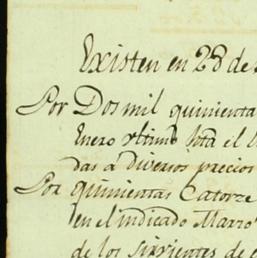 Existen en 28 de
Por Dos mil quinienta
Enero ultimo
das a diversos precios
Por quinientas Catorze
en el indicado Marro
de los sirvientes de